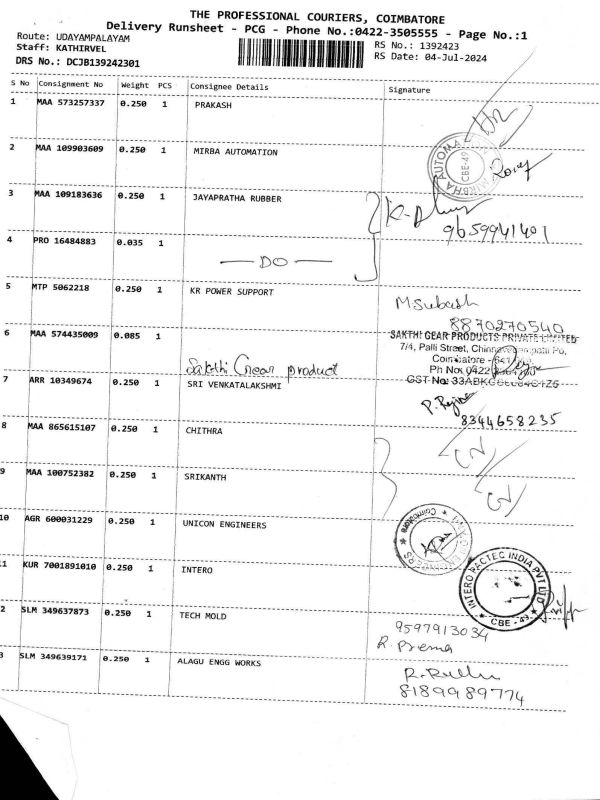 THE PROFESSIONAL COURIERS, COIMBATORE
Delivery Runsheet - PCG - Phone No.:0422-3505555 - Page No.:1
Route: UDAYAMPALAYAM
Staff: KATHIRVEL
DRS No.: DCJB139242301
RS No.: 1392423
RS Date: 04-Jul-2024
S No Consignment No Weight PCS Consignee Details Signature
1 MAA 573257337 0.250 1 PRAKASH
2 MAA 109903609 0.250 1 MIRBA AUTOMATION
CBE-49
3 MAA 109183636 0.250 1 JAYAPRATHA RUBBER
9659941401
4 PRO 16484883 0.035 1
— DO —
5 MTP 5062218 0.250 1 KR POWER SUPPORT
M Subash
8870270540
6 MAA 574435009 0.085 1
Sakthi Gear product
SAKTHI GEAR PRODUCTS PRIVATE LIMITED
7/4, Palli Street,
Coimbatore
7 ARR 10349674 0.250 1 SRI VENKATALAKSHMI
8344658235
8 MAA 865615107 0.250 1 CHITHRA
9 MAA 100752382 0.250 1 SRIKANTH
10 AGR 600031229 0.250 1 UNICON ENGINEERS
11 KUR 7001891010 0.250 1 INTERO
INTERO PACTEC INDIA PVT LTD
CBE - 49
2 SLM 349637873 0.250 1 TECH MOLD
9597913034
R. Prema
3 SLM 349639171 0.250 1 ALAGU ENGG WORKS
8189989774